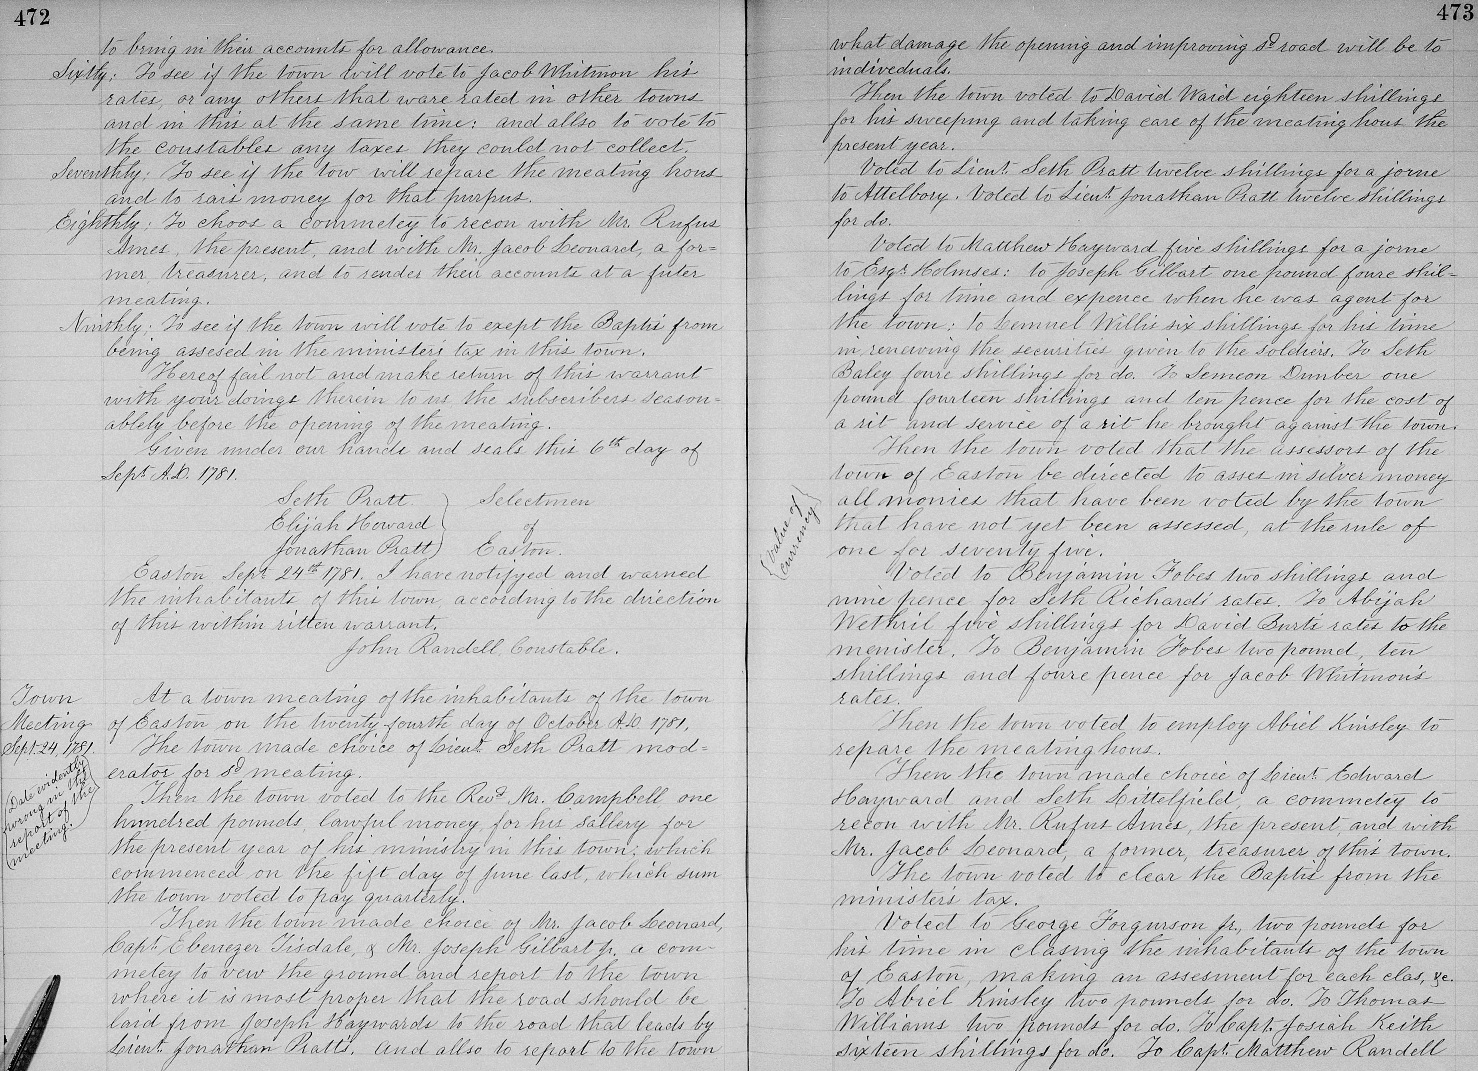 472
to bring in their accounts for allowance.
Sixtly: To see if the town will vote to Jacob Whitmon his
rates, or any others that ware rated in other towns
and in this at the same time: and allso to vote to
the constables any taxes they could not collect.
Seventhly: To see if the tow will repare the meating hous
and to rais money for that purpus.
Eighthly: To choos a commetey to recon with Mr. Rufus
Ames, the present, and with Mr. Jacob Leonard, a for=
mer, treasurer, and to render their accounts at a futer
meating.
Ninthly: To see if the town will vote to exept the Baptis from
being assesed in the ministers tax in this town.
Hereof fail not and make return of this warrant
with your doings therein to us, the subscribers season=
ablely before the opening of the meating.
Given under our hands and seals this 6th day of
Sept. A.D. 1781.
Seth Pratt } Selectmen
Elijah Howard } of
Jonathan Pratt } Easton.
Easton Sept 24th 1781. I have notifyed and warned
the inhabitants of this town, according to the direction
of this within ritten warrant,
John Randell, Constable.
Town
Meeting
Sept. 24, 1781.
{Date evidently
wrong in the
report of the
meeting.}
At a town meating of the inhabitants of the town
of Easton on the twenty fourth day of October A.D. 1781.
The town made choice of Lieut. Seth Pratt mod=
erator for sd meating.
Then the town voted to the Revd. Mr. Campbell, one
hundred pounds, lawful money, for his sallery for
the present year of his ministry in this town; which
commenced on the fift day of June last, which sum
the town voted to pay quarterly.
Then the town made choice of Mr. Jacob Leonard,
Capt. Ebenezer Tisdale, & Mr. Joseph Gilbart Jr. a com-
metey to vew the ground and report to the town
where it is most proper that the road should be
laid from Joseph Haywards to the road that leads by
Lieut. Jonathan Pratt's. And allso to report to the town
473
what damage the opening and improving sd road will be to
individuals.
Then the town voted to David Waid eighteen shillings
for his sweeping and taking care of the meating hous the
present year.
Voted to Lieut. Seth Pratt twelve shillings for a jorne
to Attelbory. Voted to Lieut. Jonathan Pratt twelve shillings
for do.
Voted to Matthew Hayward five shillings for a jorne
to Esqr. Holmses: to Joseph Gilbart one pound foure shil=
lings for time and expence when he was agent for
the town: to Lemuel Willis six shillings for his time
in renewing the securities given to the soldiers. To Seth
Baley foure shillings for do. To Semeon Dunber one
pound fourteen shillings and ten pence for the cost of
a rit and service of a rit he brought against the town.
{Value of
currency}
Then the town voted that the assessors of the
town of Easton be directed to asses in silver money
all monies that have been voted by the town
that have not yet been assessed, at the rule of
one for seventy five.
Voted to Benjamin Fobes two shillings and
nine pence for Seth Richards rates. To Abijah
Wethril five shillings for David Burt's rates to the
menister. To Benjamin Fobes two pound, ten
shillings and foure pence for Jacob Whitmon's
rates.
Then the town voted to employ Abiel Kinsley to
repare the meating hous.
Then the town made choice of Lieut. Edward
Hayward and Seth Littelfield, a commetey to
recon with Mr. Rufus Ames, the present, and with
Mr. Jacob Leonard, a former, treasurer of this town.
The town voted to clear the Baptis from the
ministers tax.
Voted to George Forgurson Jr., two pounds for
his time in clasing the inhabitants of the town
of Easton, making an assesment for each clas, &c.
To Abiel Kinsley two pounds for do. To Thomas
Williams two pounds for do. To Capt. Josiah Keith
sixteen shillings for do. To Capt. Matthew Randell